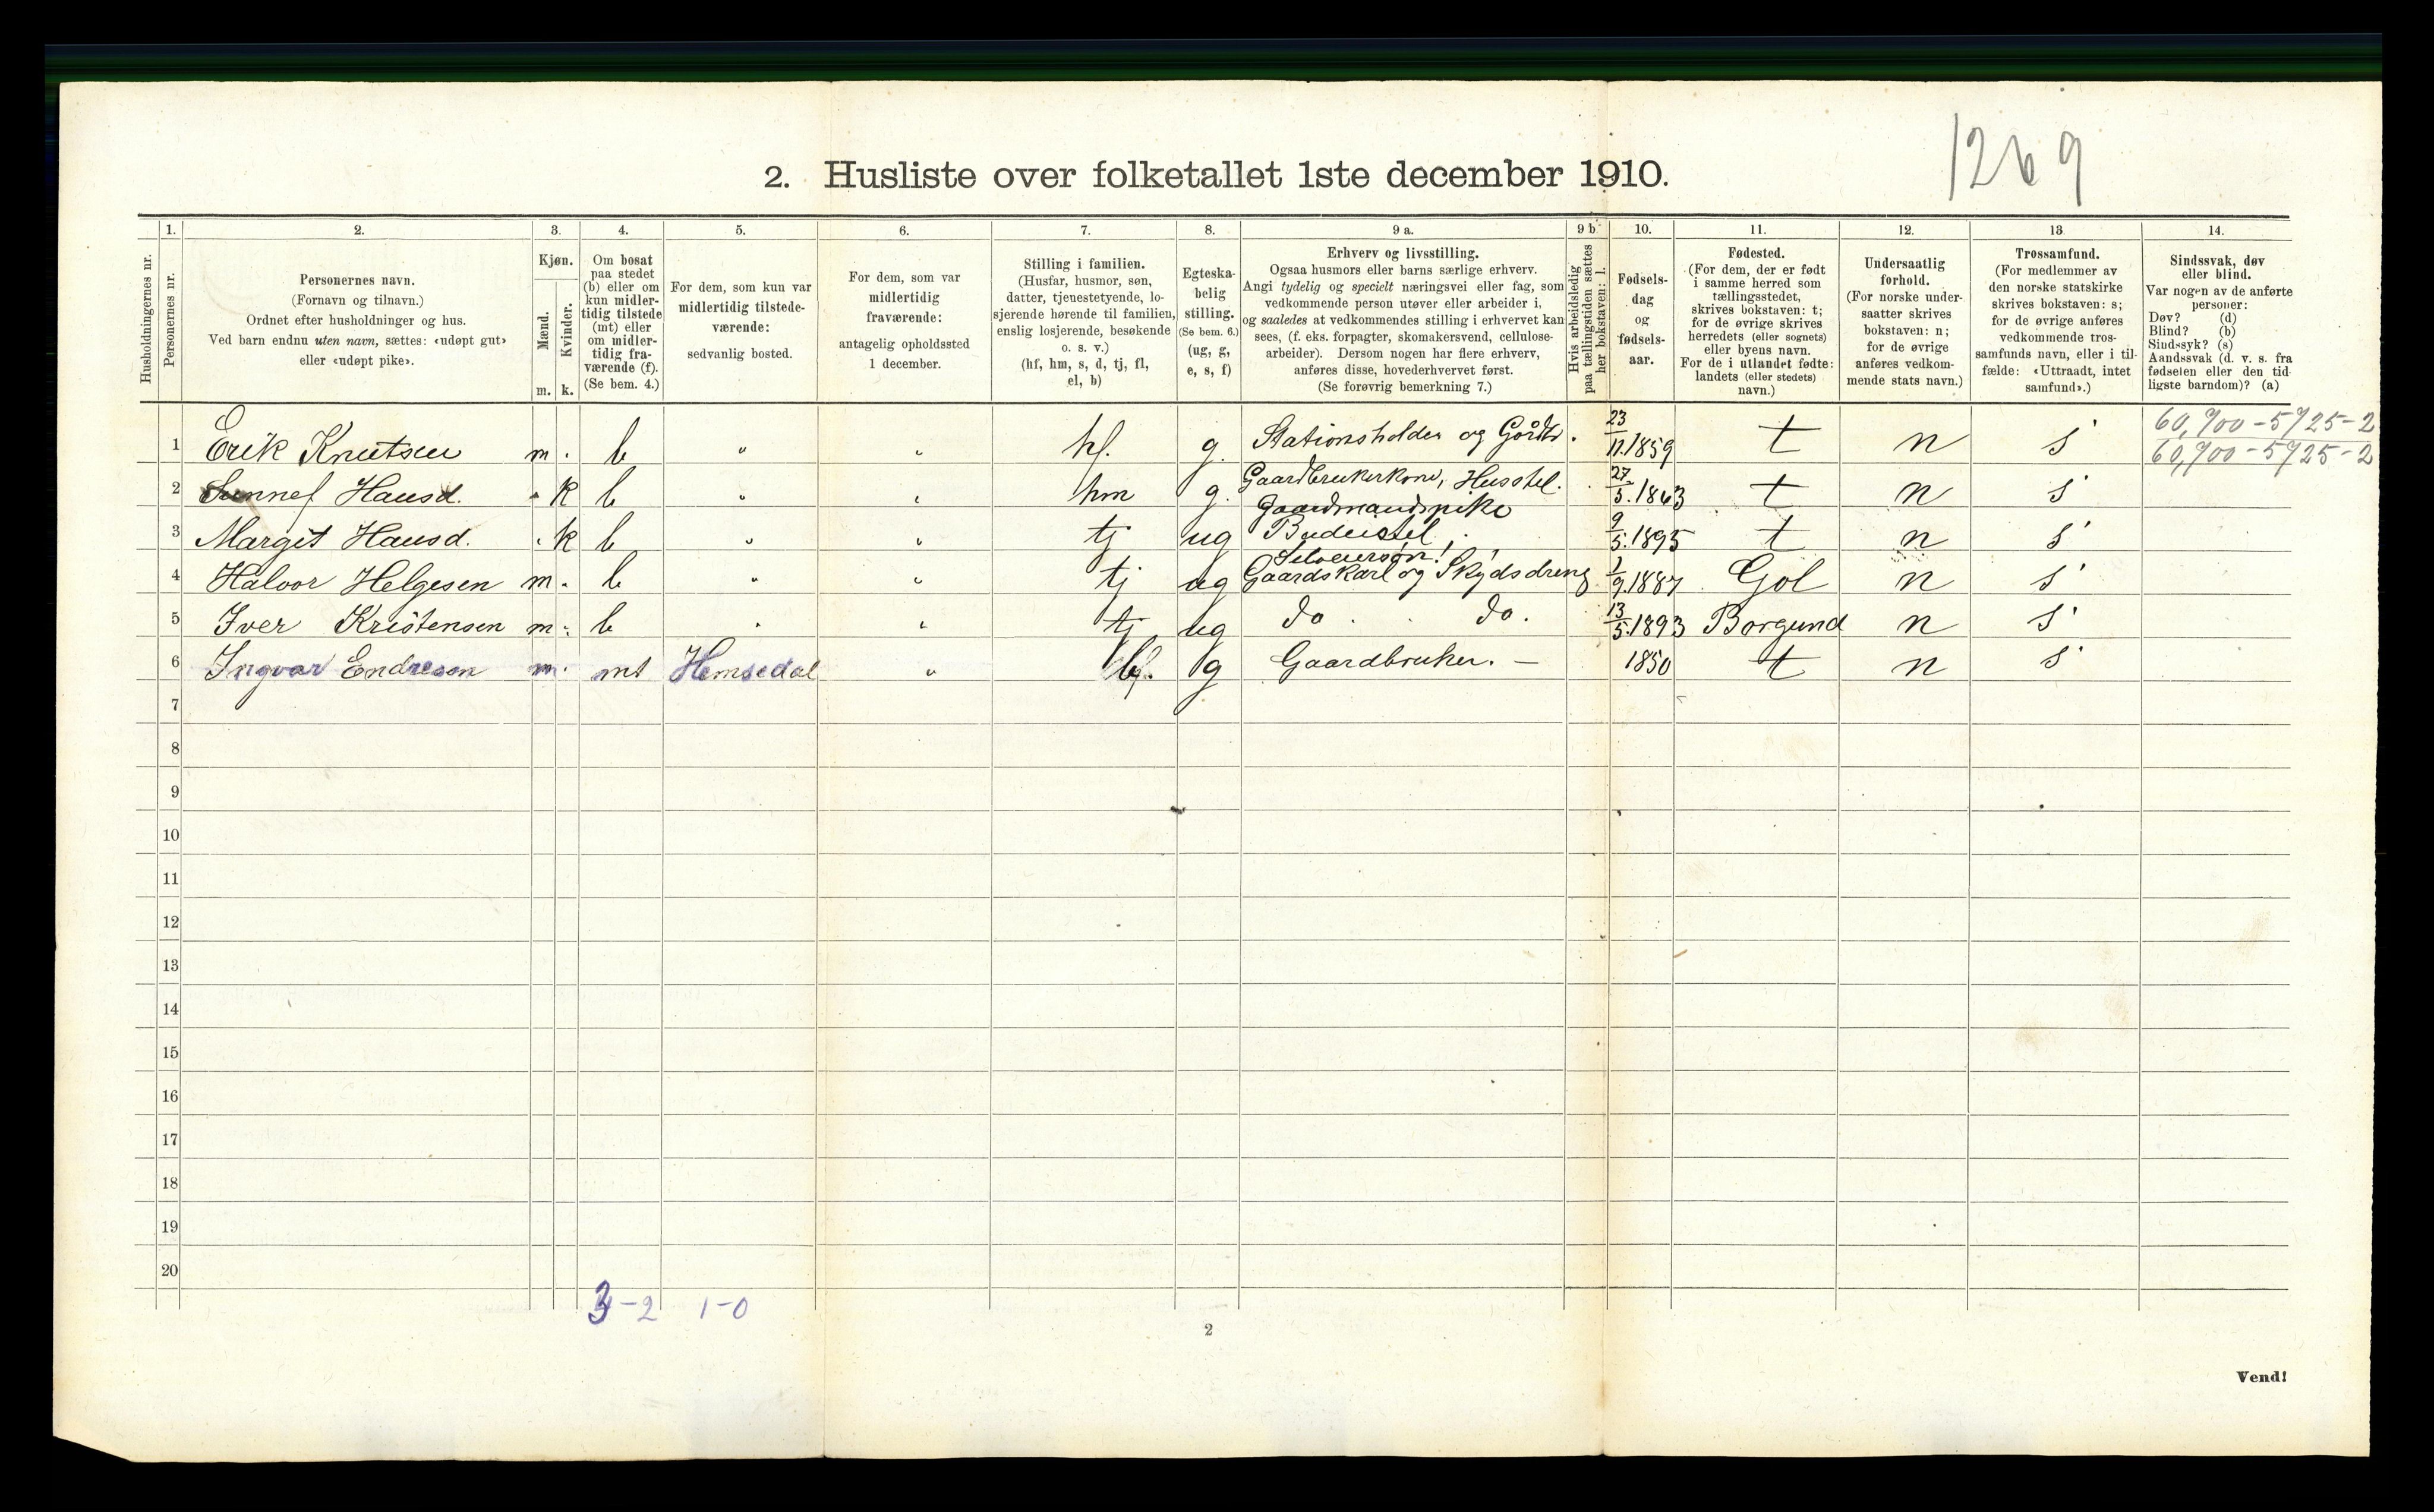 1269
2. Husliste over folketallet 1ste december 1910.
1. 2. 3. 4. 5. 6. 7. 8. 9 a. 9 b. 10. 11. 12. 13 14.
Husholdningernes nr.
Personernes nr.
Personernes navn.
(Fornavn og tilnavn.)
Ordnet efter husholdninger og hus.
Ved barn endnu uten navn, sættes: «udøpt gut»
eller «udøpt pike».
Kjøn.
Mænd.
Kvinder.
m. k.
Om bosat
paa stedet
(b) eller om
kun midler-
tidig tilstede
(mt) eller
om midler-
tidig fra-
værende (f).
(Se bem. 4.)
For dem, som kun var
midlertidig tilstede-
værende:
sedvanlig bosted.
For dem, som var
midlertidig
fraværende:
antagelig opholdssted
1 december.
Stilling i familien.
(Husfar, husmor, søn,
datter, tjenestetyende, lo-
sjerende hørende til familien,
enslig losjerende, besøkende
o. s. v.)
(hf, hm, s, d, tj, fl,
el, b)
Egteska-
belig
stilling.
(Se bem. 6.)
(ug, g,
e, s, f)
Erhverv og livsstilling.
Ogsaa husmors eller barns særlige erhverv.
Angi tydelig og specielt næringsvei eller fag, som
vedkommende person utøver eller arbeider i,
og saaledes at vedkommendes stilling i erhvervet kan
sees, (f. eks. forpagter, skomakersvend, cellulose-
arbeider). Dersom nogen har flere erhverv,
anføres disse, hovederhvervet først.
(Se forøvrig bemerkning 7.)
Hvis arbeidsledig
paa tællingstiden sættes
her bokstaven: l.
Fødsels-
dag
og
fødsels-
aar.
Fødested.
(For dem, der er født
i samme herred som
tællingsstedet,
skrives bokstaven: t;
for de øvrige skrives
herredets (eller sognets)
eller byens navn.
For de i utlandet fødte:
landets (eller stedets)
navn.)
Undersaatlig
forhold.
(For norske under-
saatter skrives
bokstaven: n;
for de øvrige
anføres vedkom-
mende stats navn.)
Trossamfund.
(For medlemmer av
den norske statskirke
skrives bokstaven: s;
for de øvrige anføres
vedkommende tros-
samfunds navn, eller i til-
fælde: «Uttraadt, intet
samfund».)
Sindssvak, døv
eller blind.
Var nogen av de anførte
personer:
Døv? (d)
Blind? (b)
Sindssyk? (s)
Aandssvak (d. v. s. fra
fødselen eller den tid-
ligste barndom)? (a)
60,900-5925-2
1 Erik Knutsen m. b " " hf. g. Stationsholder og Gårdbr. 23/11.1859 t n s 60,900-5925-2
2 Sunnef Hansd. k b " " hm g. Gaardbrukerkone, Husstel. 27/5.1863 t n s
Gaardmandspike
3 Margit Hansd. k b " " tj ug Budeistel, 9/5.1895 t n s
Selveiersøn!
4 Halvor Helgesen m. b " " tj ug Gaardskarl og Skydsdreng 1/9.1887 Gol n s
5 Iver Kristensen m. b " " tj ug do. do. 13/5.1893 Borgund n s
6 Ingvar Endresen m. mt Hemsedal " g Gaardbruker. — 1850 t n s
7
8
9
10
11
12
13
14
15
16
17
18
19
20
3-2 1-0
2
Vend!